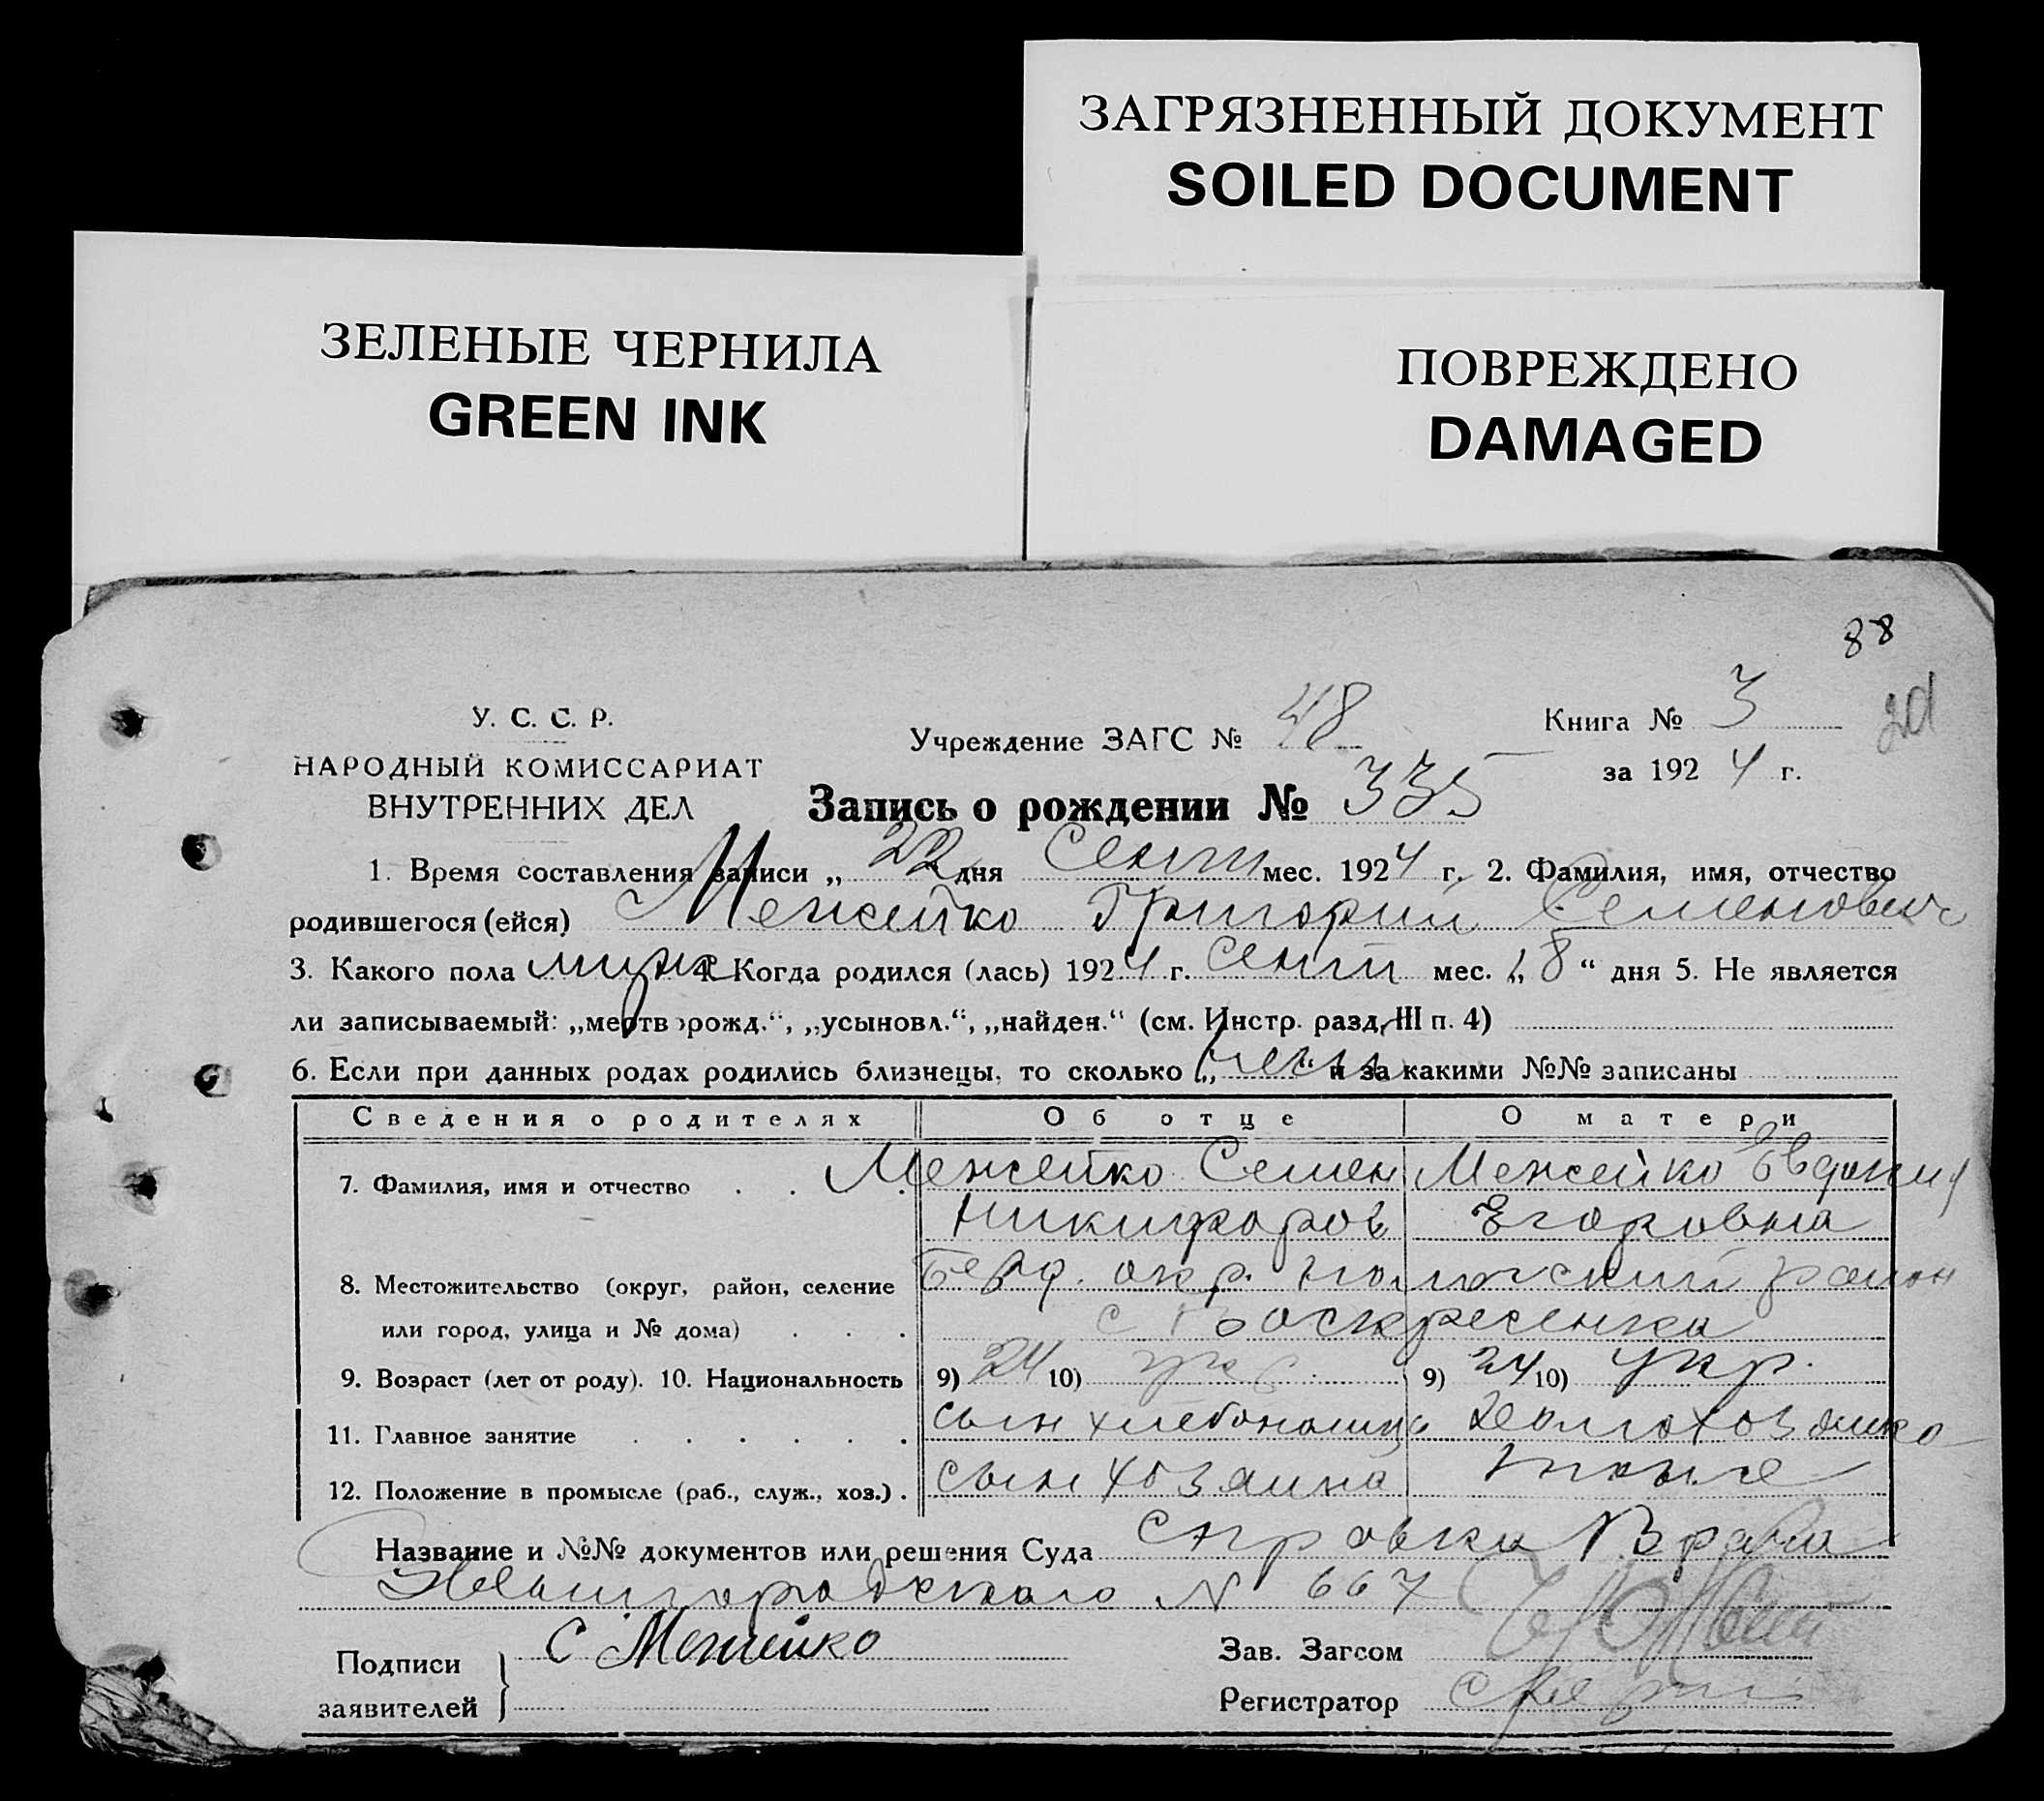 ЗАГРЯЗНЕННЫЙ ДОКУМЕНТ
SOILED DOCUMENT
ЗЕЛЕНЫЕ ЧЕРНИЛА
GREEN INK
ПОВРЕЖДЕНО
DAMAGED
88
У. С. С. Р.
НАРОДНЫЙ КОМИССАРИАТ
ВНУТРЕННИХ ДЕЛ
Учреждение ЗАГС № 48
Книга № 3
за 1924 г.
Запись о рождении № 335
1. Время составления записи „ 22 дня Сент мес. 1924 г. 2. Фамилия, имя, отчество
родившегося (ейся) Межейко Григорий Семенович
3. Какого пола муж 4. Когда родился (лась) 1924 г. Сент мес. „ 8 “ дня 5. Не является
ли записываемый: „мертворожд.“, „усыновл.“, „найден.“ (см. Инстр. разд. III п. 4)
6. Если при данных родах родились близнецы, то сколько „ “ и за какими №№ записаны
Сведения о родителях Об отце О матери
7. Фамилия, имя и отчество . . . Межейко Семен Межейко Евдокия
Никифоров Егоровна
8. Местожительство (округ, район, селение Берд. окр. район
или город, улица и № дома) . . . с Воскресенка
9. Возраст (лет от роду). 10. Национальность 9) 24 10) укр. 9) 24 10) укр.
11. Главное занятие . . . . . . сын хлебопашца Домохозяйка
12. Положение в промысле (раб., служ., хоз.) . сын хозяина
Название и №№ документов или решения Суда справка Врача
N 667
Подписи
заявителей
С Межейко
Зав. Загсом
Регистратор